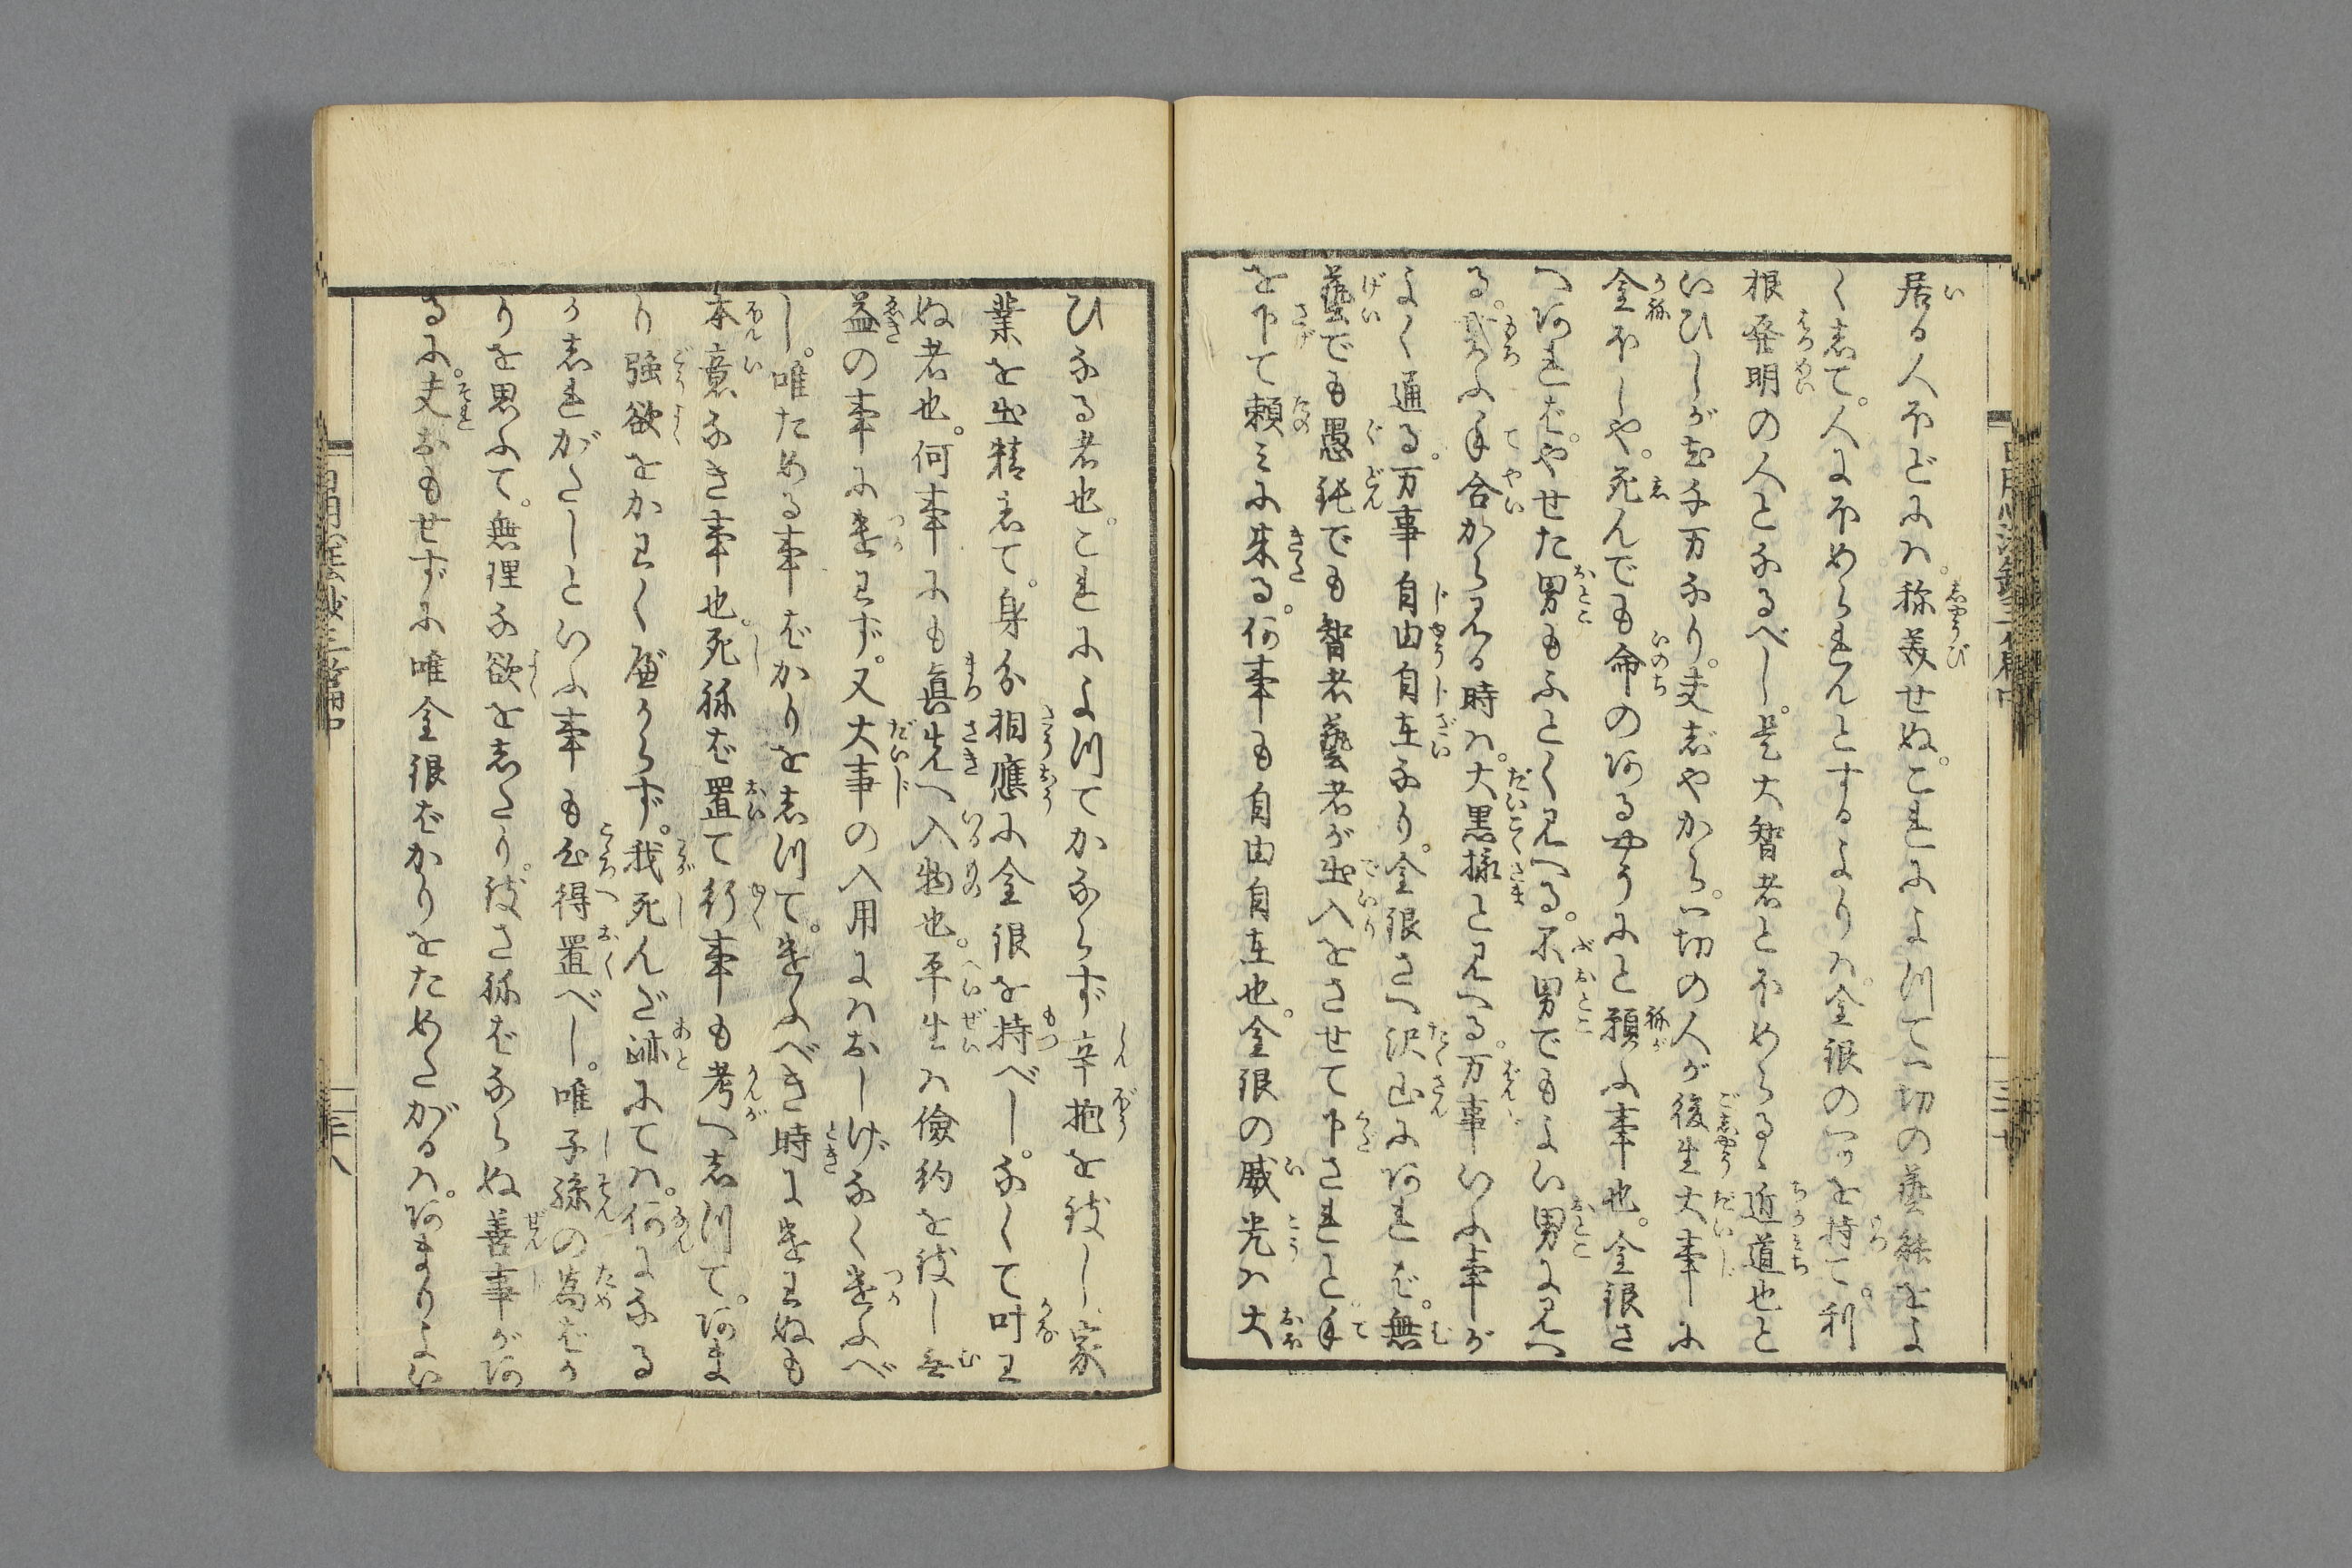 居る人ほどにハ。称美せぬ。これによつて一切の藝能をよ
く志て。人にほめられんとするよりハ。金銀の一ツを持て。利
根発明の人となるべし。是大智者とほめらるゝ近道也と
いひしが至千万なり。夫じやから。一切の人が後生大事に
金ほしや。死んでも命のあるやうにと願ふ事也。金銀さ
へあれば。やせた男もふとく見へる。不男でもよい男に見へ
る。貰ふ手合から見る時ハ。大黒様と見へる。万事いふ事が
よく通る。万事自由自在なり。金銀さへ沢山にあれば。無
藝でも愚鈍でも智者藝者が出入をさせて下されと手
を下て頼ミに来る。何事も自由自在也。金銀の威光ハ大
ひなる者也。これによつてかならず辛抱を致し家
業を出精志て。身分相應に金銀を持べし。なくて叶ハ
ぬ者也。何事にも真先へ入物也。平生ハ儉約を致し無
益の事に遣ハず。又大事の入用にハおしげなく遣ふべ
し。唯ためる事ばかりを志つて。遣ふべき時に遣ハぬも
本意なき事也。死ねば置て行事も考へ志つて。あま
り強欲をかハく べからず。我死んだ跡にてハ。何になる
か志れがたしといふ事も心得置べし。唯子孫の為ばか
りを思ふて。無理な欲を志たり。致さねばならぬ善事があ
るに。夫おもせずに唯金銀ばかりをためたがるハ。あまりよい